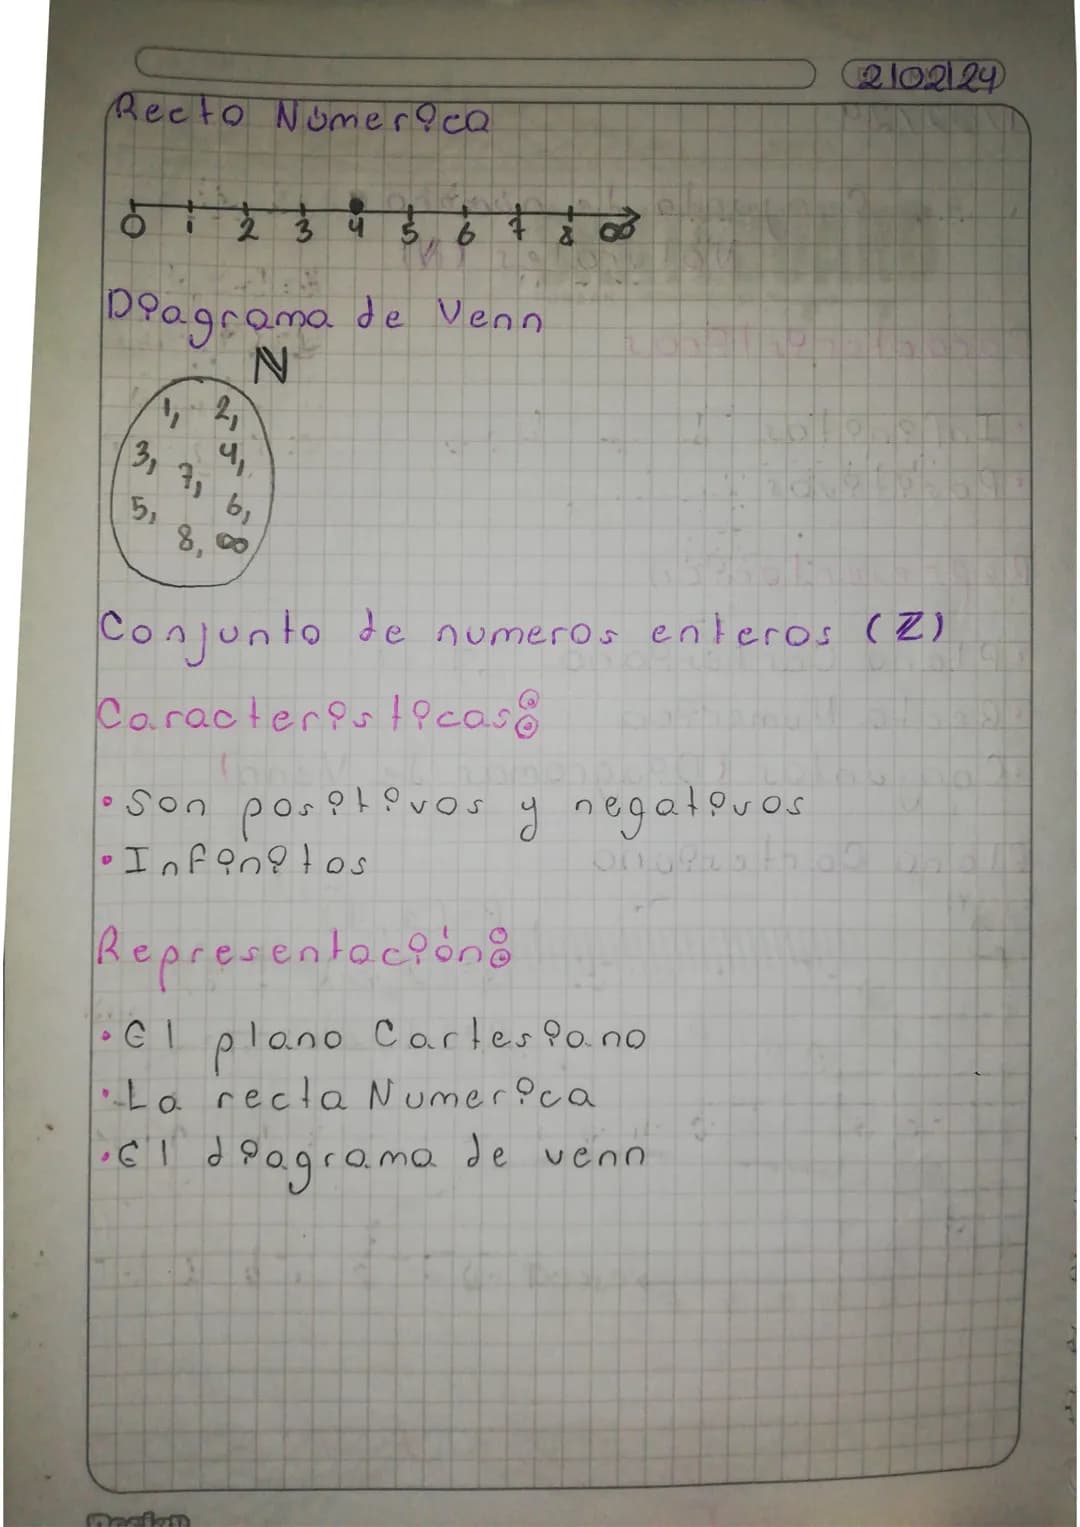 2/02/24
Recta Númerica
0 1 2 3 4 5 6 7 8 ∞
Diagrama de Venn
N
1, 2,
3, 4,
7,
5, 6,
8, ∞
Conjunto de numeros enteros (Z)
Caracteristicas:
• Son positivos y negativos
• Infinitos
Representación:
• El plano Cartesiano
• La recta Numerica
• El diagrama de venn